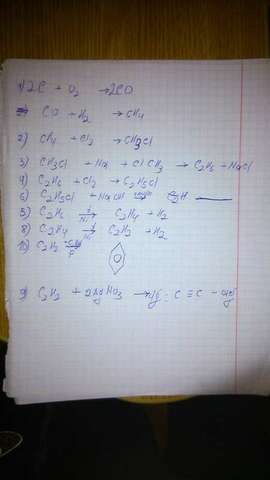 1) 2C + O2 → 2CO
CO + H2 → CH4
2) CH4 + Cl2 → CH3Cl
3) CH3Cl + Na + ClCH3 → C2H6 + NaCl
4) C2H6 + Cl2 → C2H5Cl
6) C2H5Cl + NaOH
5) C2H6 → C2H4 + H2
8) C2H4 → C2H2 + H2
10) C2H2
9) C2H2 + 2AgNO3 → Ag - C ≡ C - Ag